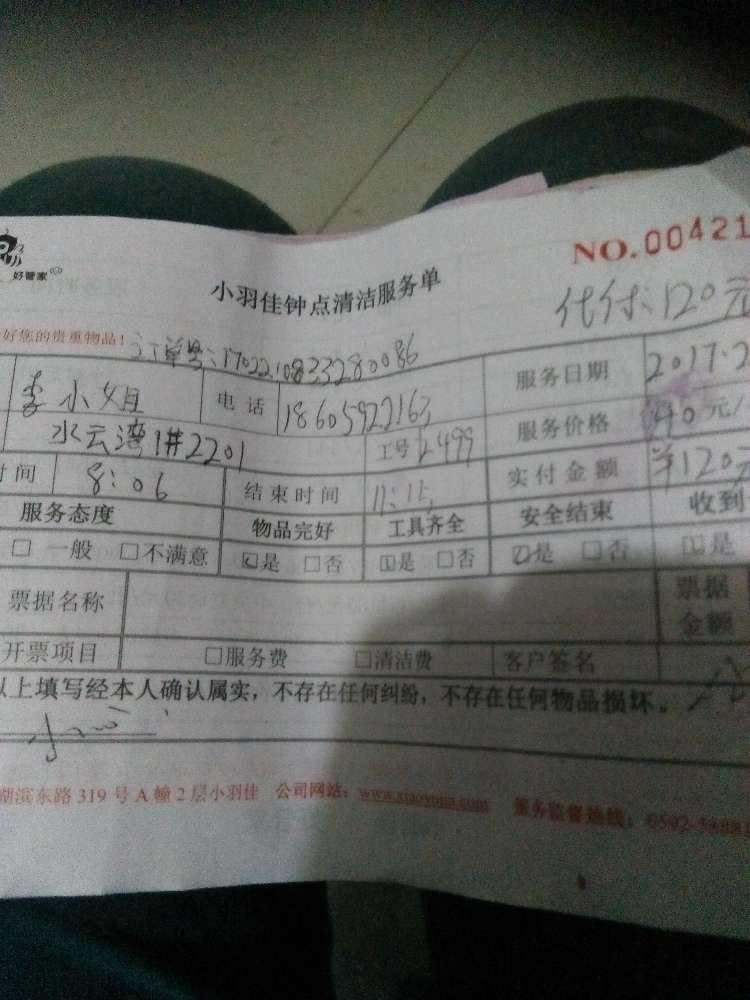 好管家
NO.00421
小羽佳钟点清洁服务单
代付:120元
好您的贵重物品！
订单号:1702210833280086
李小姐 电话 18605922163 服务日期 2017.2
水云湾1#2201 工号 2499 服务价格 40元/
时间 8:06 结束时间 11:15 实付金额 ¥120元
服务态度 物品完好 工具齐全 安全结束 收到
□一般 □不满意 ☑是 □否 ☑是 □否 ☑是 □否 ☑是
票据名称 票据金额
开票项目 □服务费 □清洁费 客户签名
以上填写经本人确认属实，不存在任何纠纷，不存在任何物品损坏。
湖滨东路319号A幢2层小羽佳 公司网站：www.xiaoyujia.com 服务监督热线：0592-5888